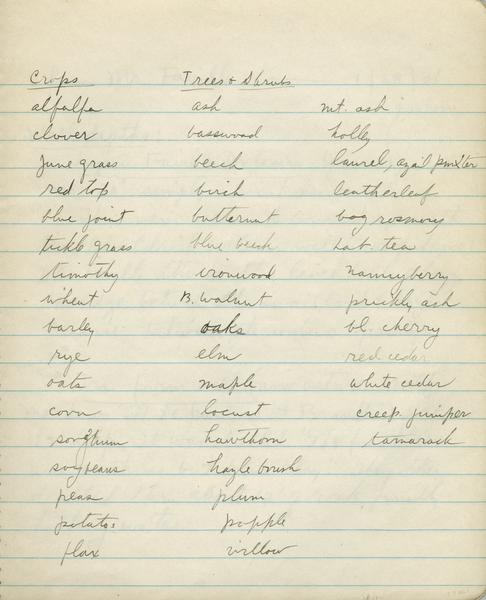 Crops Trees & Shrubs
alfalfa ash mt. ash
clover basswood holly
June grass beech laurel,
red top birch leatherleaf
blue joint butternut bog rosmery
tickle grass blue beech Lab. tea
timothy ironwood nannyberry
wheat B. walnut prickly ash
barley oaks bl. cherry
rye elm red cedar
oats maple white cedar
corn locust creep. juniper
sorghum hawthorn tamarack
soybeans hazle brush
peas plum
potatos popple
flax willow